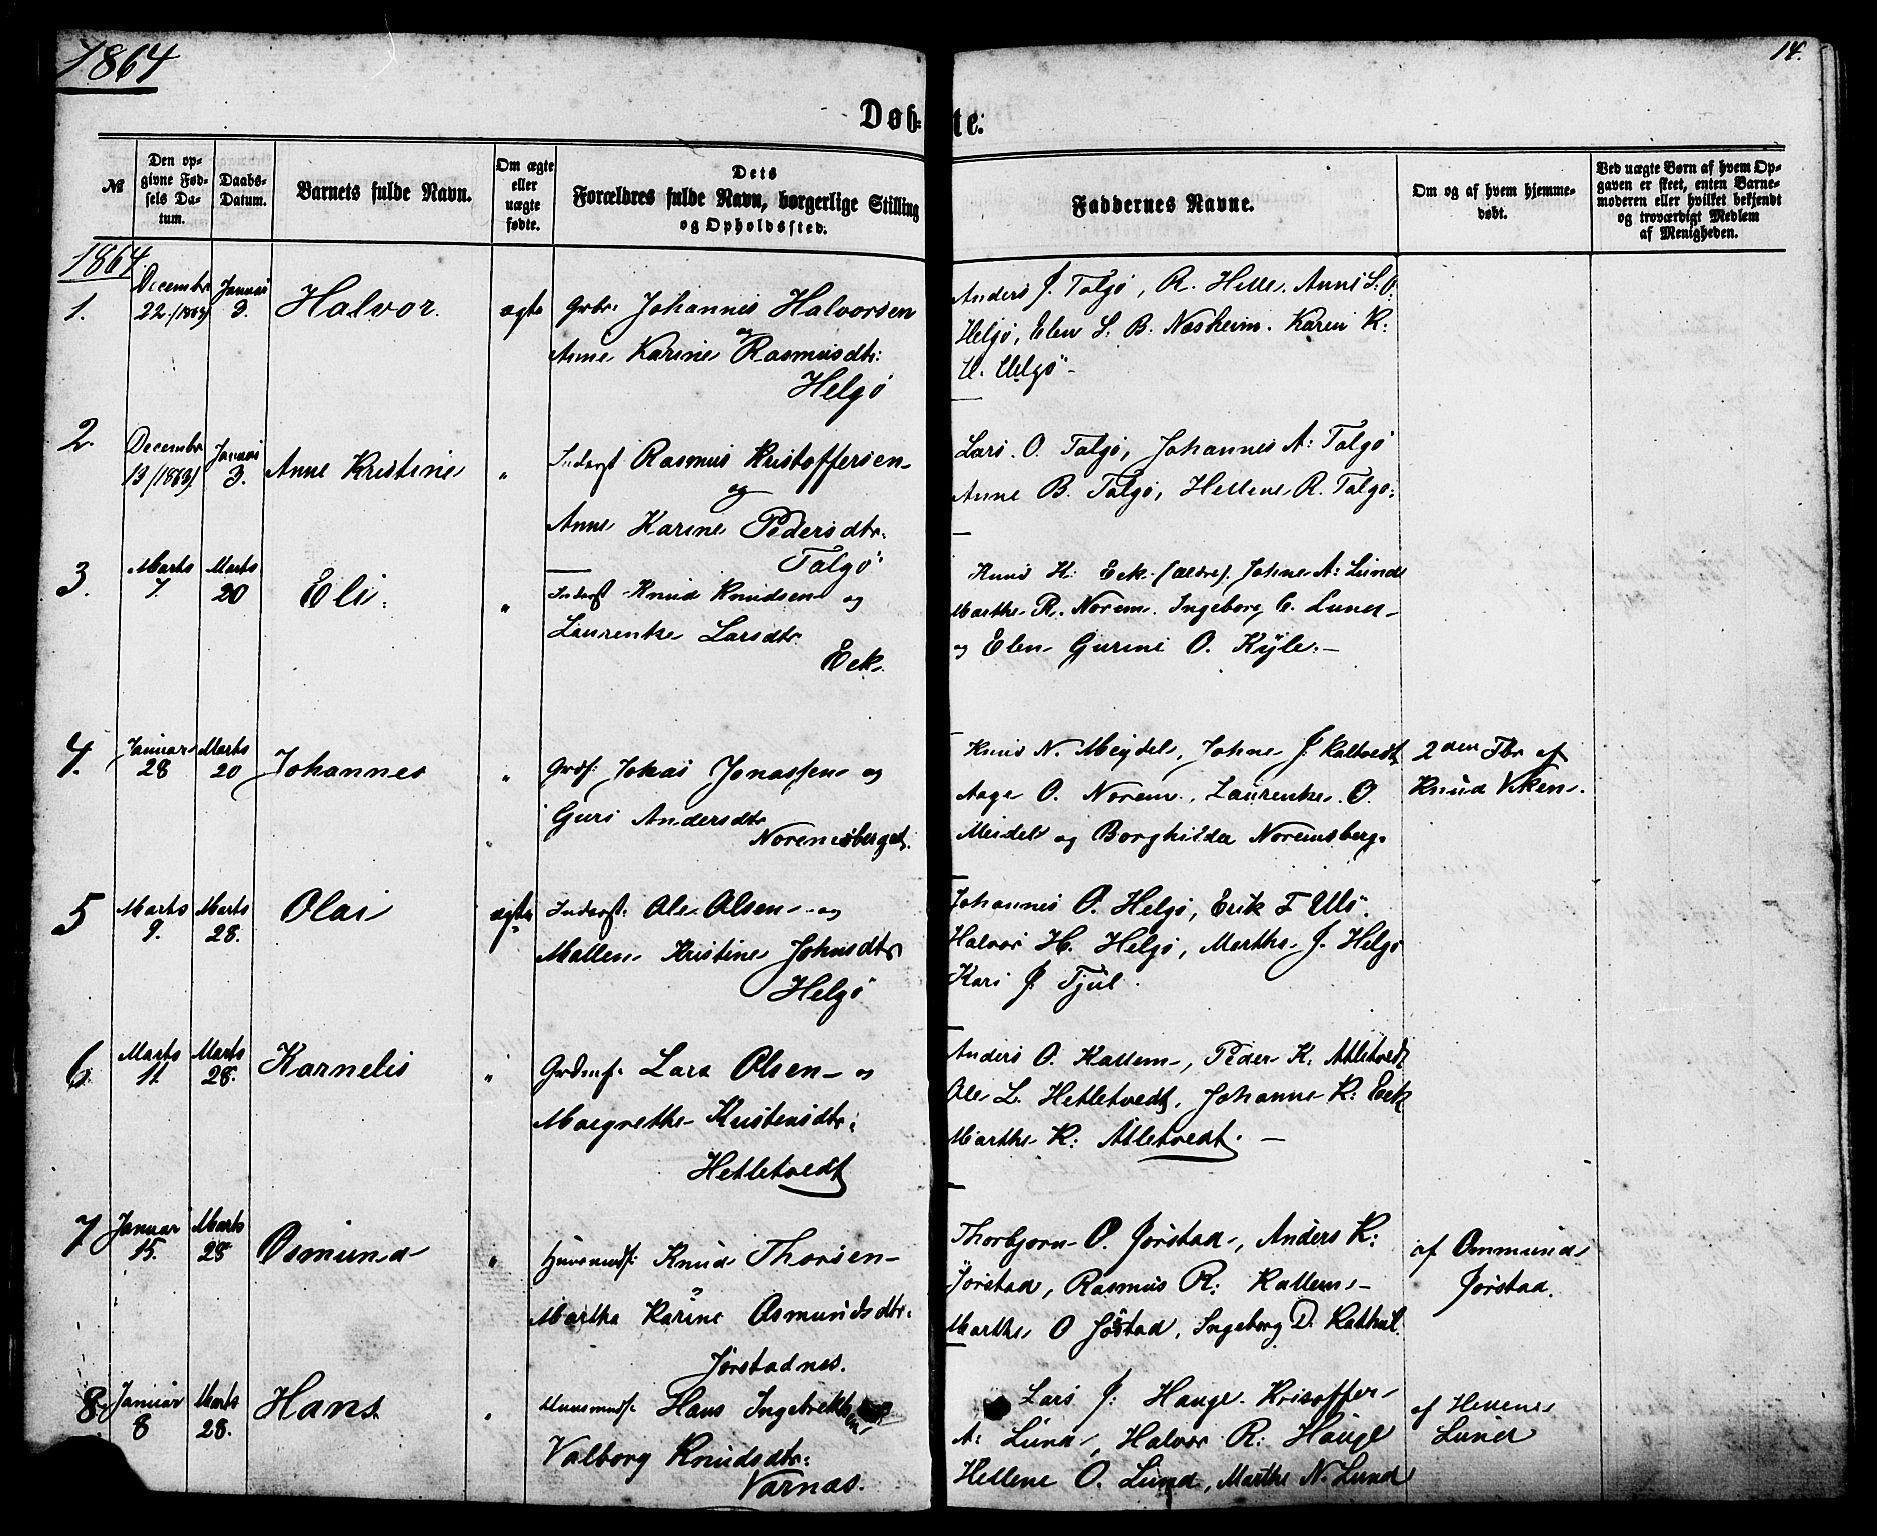 1864
14.
Døb-te.
№
Den opgivne Fødsels Datum.
Daabs-Datum.
Barnets fulde Navn.
Om ægte eller uægte fødte.
Dets Forældres fulde Navn, borgerlige Stilling og Opholdssted.
Faddernes Navne.
Om og af hvem hjemmedøbt.
Ved uægte Børn af hvem Opgaven er skeet, enten Barnemoderen eller hvilket bekjendt og troværdigt Medlem af Menigheden.
1864
1. Decembr 22 (1863) Januar 3. Halvor. ægte Grbr: Johannes Halvorsen
og
Anne Karine Rasmusdtr:
Helgö
Anders J. Talgö, R. Helle, Anne S. O:
Helgö, Elen S. B. Næsheim. Karen K:
H. Helgö -
2. Decembr 13 (1863) Januar 3. Anne Kristine " Inderst Rasmus Kristoffersen
og
Anne Karine Pedersdtr.
Talgö
Lars O. Talgö, Johannes A: Talgö
Anne B. Talgö, Hellene R. Talgö:
3. Marts 7. Marts 20 Eli: " Inderst Knud Knudsen og
Laurentze Larsdtr.
Eek.
Knud K: Eek (ældre). Johne A: Lunde
Marthe R. Norem. Ingeborg C. Lunde
og Elen Gurine O. Kyle. -
4. Januar 28 Marts 20 Johannes " Grdf: Jonas Jonassen og
Guri Andersdtr
Noremsberget.
Knud N. Meydel, Johne J. Kaltvedt
Aage O. Norem, Laurentze O.
Meidel og Borghilda Noremsberg.
2den Fbr af
Knud Viken.
5 Marts 9. Marts 28. Olai ægte Inderst: Ole Olsen og
Mallene Kristine Johnsdtr
Helgö
Johannes O. Helgö, Erik F Ulö.
Halvor H. Helgö, Marthe J. Helgö
Kari J. Tjul.
6. Marts 11. Marts 28. Karnelis " Grdmf: Lars Olsen og
Margrethe Kristensdtr:
Hetletvedt
Anders O. Kallem, Peder K. Atletvedt
Ole L. Hetletvedt, Johanne K: Eek
Marthe K: Atletvedt. -
7 Januar 15. Marts 28 Osmund " Huusmdf: Knud Thorsen
og
Martha Karine Osmundsdtr.
Jörstadnes.
Thorbjørn O. Jörstad, Anders K:
Jörstad, Rasmus R: Kallem
Marthe O Jörstad, Ingeborg D.
af Ommund
Jörstad.
8. Januar 8 Marts 28. Hans " Huusmdf: Hans Ingebrektsen
Valborg Knudsdtr:
Varnæs.
Lars J: Hauge. Kristoffer
A: Lund, Halvor R: Hauge
Hellene O. Lund, Marthe N. Lund
af Hellene
Lund